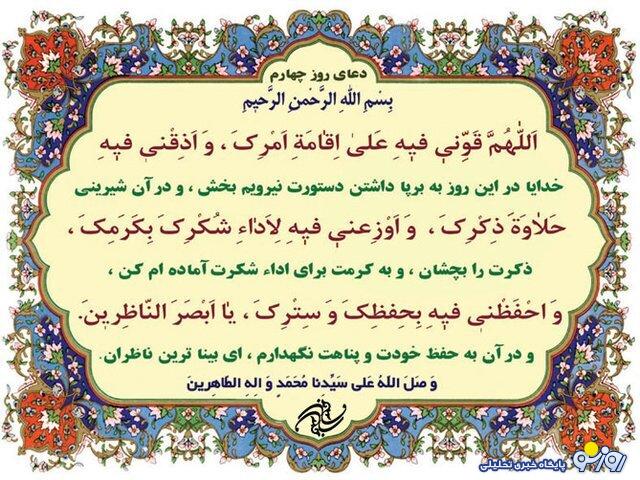 دعای روز چهارم
بِسْمِ اللهِ الرَّحْمنِ الرَّحیمِ
اَللّٰهُمَّ قَوِّنی فیهِ عَلیٰ اِقٰامَةِ اَمْرِکَ ، وَ اَذِقْنی فیهِ
خدایا در این روز به برپا داشتن دستورت نیرویم بخش ، و در آن شیرینی
حَلاٰوَةَ ذِکْرِکَ ، وَ اَوْزِعنی فیهِ لِاَدٰاءِ شُکْرِکَ بِکَرَمِکَ ،
ذکرت را بچشان ، و به کرمت برای اداء شکرت آماده ام کن ،
وَ احْفَظْنی فیهِ بِحِفظِکَ وَ سِتْرِکَ ، یٰا اَبْصَرَ النّاظِرینَ.
و در آن به حفظ خودت و پناهت نگهدارم ، ای بینا ترین ناظران.
وَ صَلَ اللهُ عَلی سَیِّدِنا مُحَمَدٍ وَ الِهِ الطّاهِرینَ
روز نو
پایگاه خبری تحلیلی